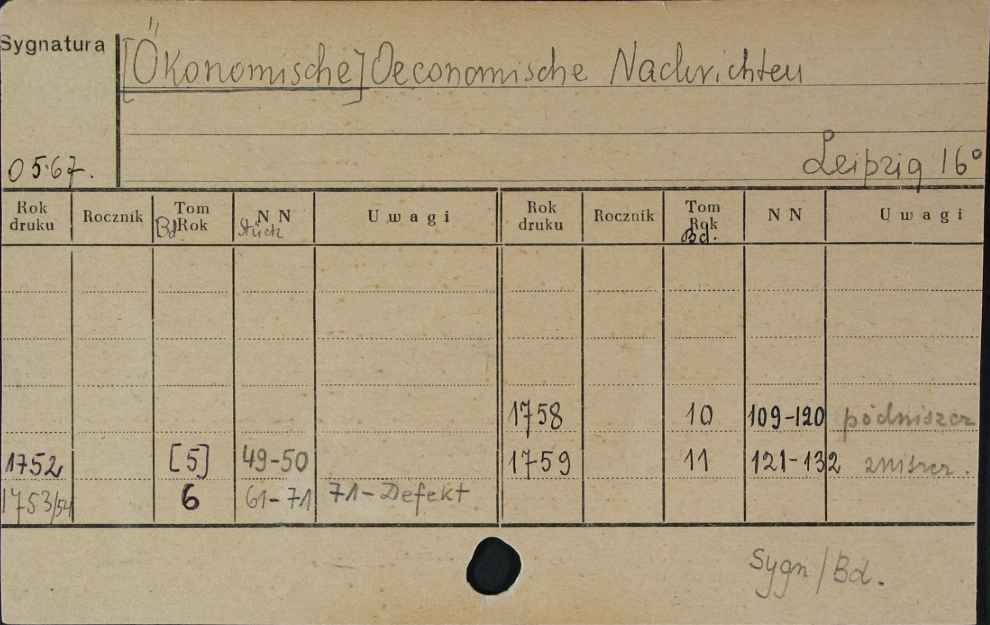 Sygnatura
[Ökonomische] Oeconomische Nachrichten
0567.
Leipzig 16°
Rok druku Rocznik Tom Rok [Bd. NN Stück Uwagi Rok druku Rocznik Tom Rok Bd. NN Uwagi
1758 10 109-120
1752 [5] 49-50 1759 11 121-132 zniszcz.
1753/54 6 61-71 71-Defekt
Sygn/Bd.